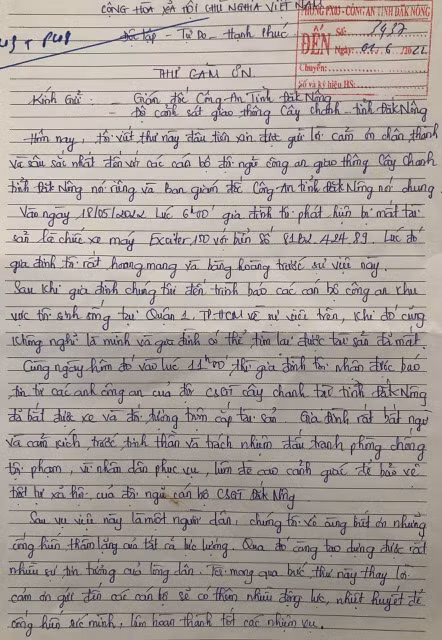 CỘNG HÒA XÃ HỘI CHỦ NGHĨA VIỆT NAM
Độc lập - Tự Do - Hạnh Phúc
PHÒNG PX03 - CÔNG AN TỈNH ĐẮK NÔNG
ĐẾN
Số: 1437
Ngày: 01.6./2022
Chuyển:
Số và ký hiệu HS:
THƯ CẢM ƠN
Kính Gửi: - Giám đốc Công An Tỉnh Đăk Nông
- Đội cảnh sát giao thông Cây chanh - tỉnh Đăk Nông
Hôm nay, tôi viết thư này đầu tiên xin được gửi lời cảm ơn chân thành
và sâu sắc nhất đối với các cán bộ đội ngũ công an giao thông Cây Chanh
tỉnh Đăk Nông nói riêng và Ban giám đốc Công An tỉnh Đăk Nông nói chung.
Vào ngày 18/05/2022 Lúc 6h00' gia đình tôi phát hiện bị mất tài
sản là chiếc xe máy Exciter 150 với biển số 81B2.424.89. Lúc đó
gia đình tôi rất hoang mang và bàng hoàng trước sự việc này.
Sau khi gia đình chúng tôi đến trình báo các cán bộ công an khu
vực tôi sinh sống tại Quận 1. TP.HCM về vụ việc trên, khi đó cũng
không nghĩ là mình và gia đình có thể tìm lại được tài sản đã mất.
Cùng ngày hôm đó vào lúc 11h00', thì gia đình tôi nhận được báo
tin từ các anh công an của đội CSGT cây chanh tại tỉnh Đăk Nông
đã bắt được xe và đối tượng trộm cắp tài sản. Gia đình rất bất ngờ
và cảm kích, trước tinh thần và trách nhiệm đấu tranh phòng chống
tội phạm, vì nhân dân phục vụ, luôn đề cao cảnh giác để bảo vệ
trật tự xã hội của đội ngũ cán bộ CSGT Đăk Nông
Sau vụ việc này là một người dân, chúng tôi vô cùng biết ơn những
cống hiến thầm lặng của tất cả lực lượng. Qua đó càng tạo dựng được rất
nhiều sự tin tưởng của lòng dân. Tôi mong qua bức thư này thay lời
cảm ơn gửi đến các cán bộ sẽ có thêm nhiều động lực, nhiệt huyết để
cống hiến sức mình, làm hoàn thành tốt các nhiệm vụ.